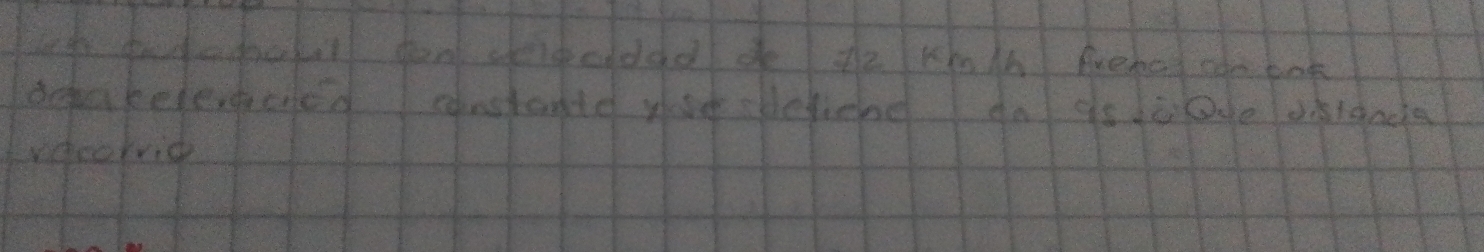 un automovil con velocidad de 72 Km/h frena con una
desaceleración constante y se detiene en 9s. ¿Que distancia
recorrio